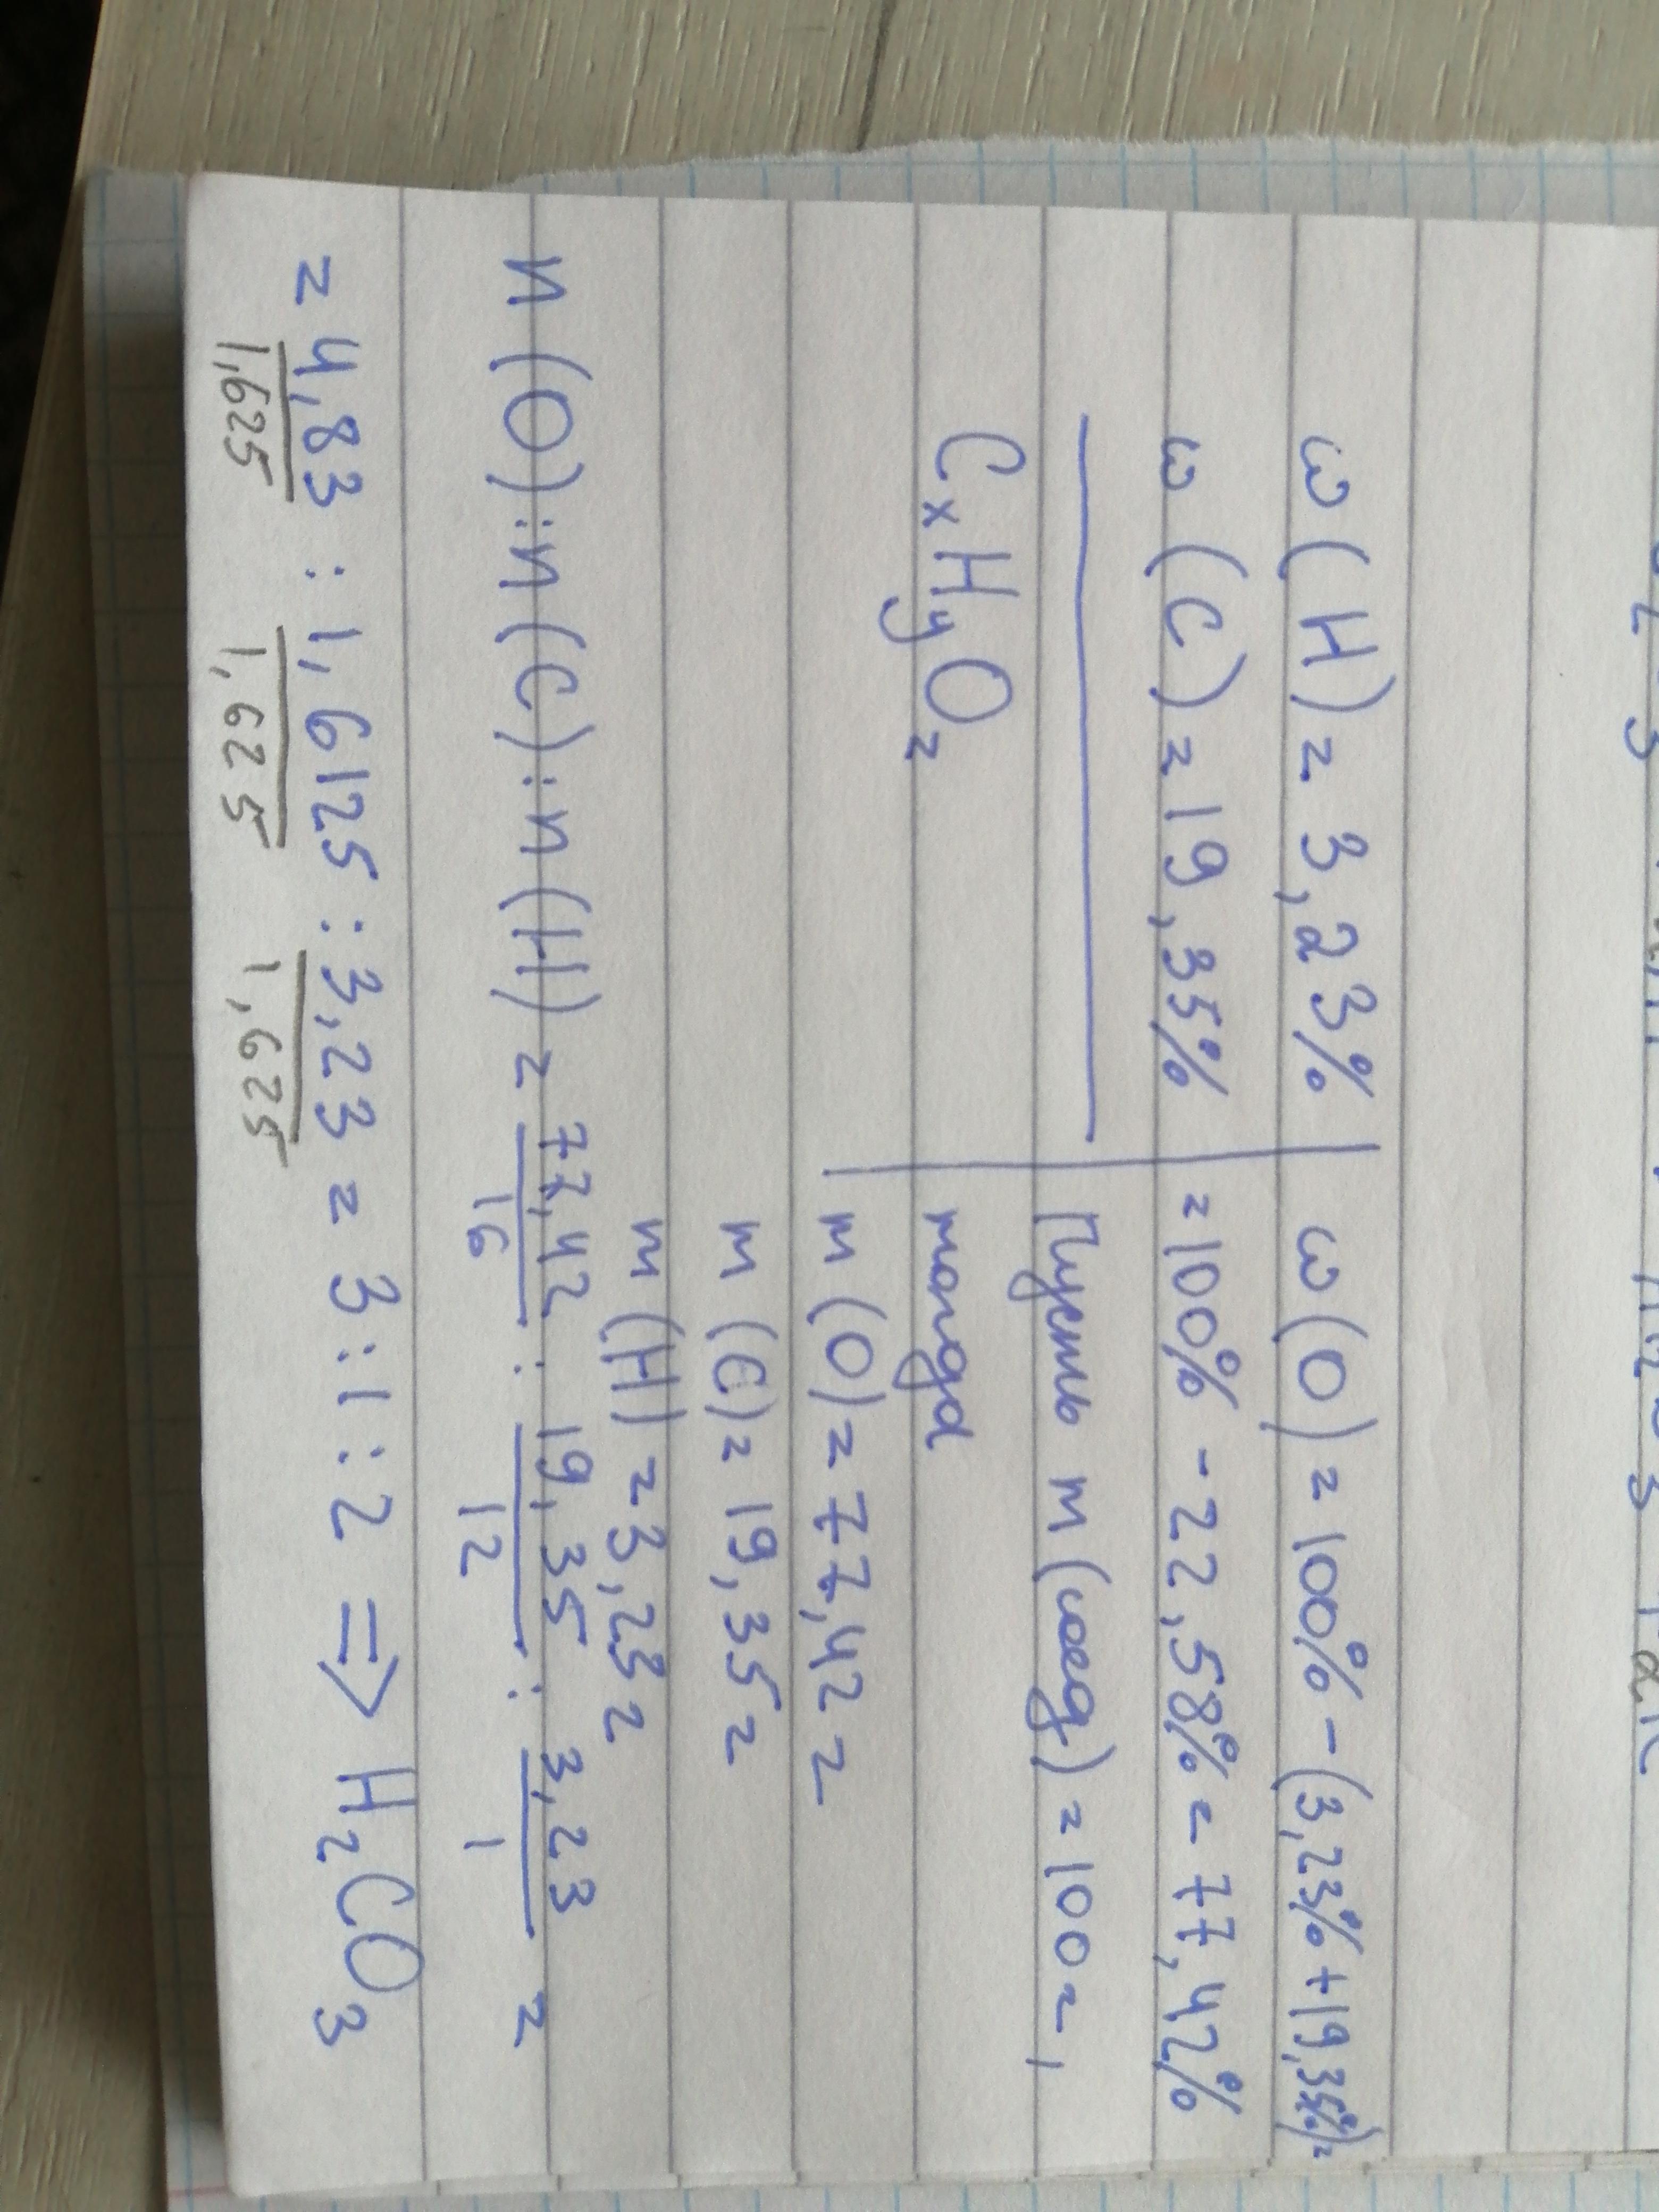 ω(H) = 3,23% | ω(O) = 100% - (3,23% + 19,35%) =
ω(C) = 19,35% | = 100% - 22,58% = 77,42%
Пусть m(соед) = 100 г,
CxHyOz | тогда
m(O) = 77,42 г
m(C) = 19,35 г
m(H) = 3,23 г
n(O):n(C):n(H) = 77,42/16 : 19,35/12 : 3,23/1 =
= 4,83/1,625 : 1,6125/1,625 : 3,23/1,625 = 3:1:2 => H₂CO₃